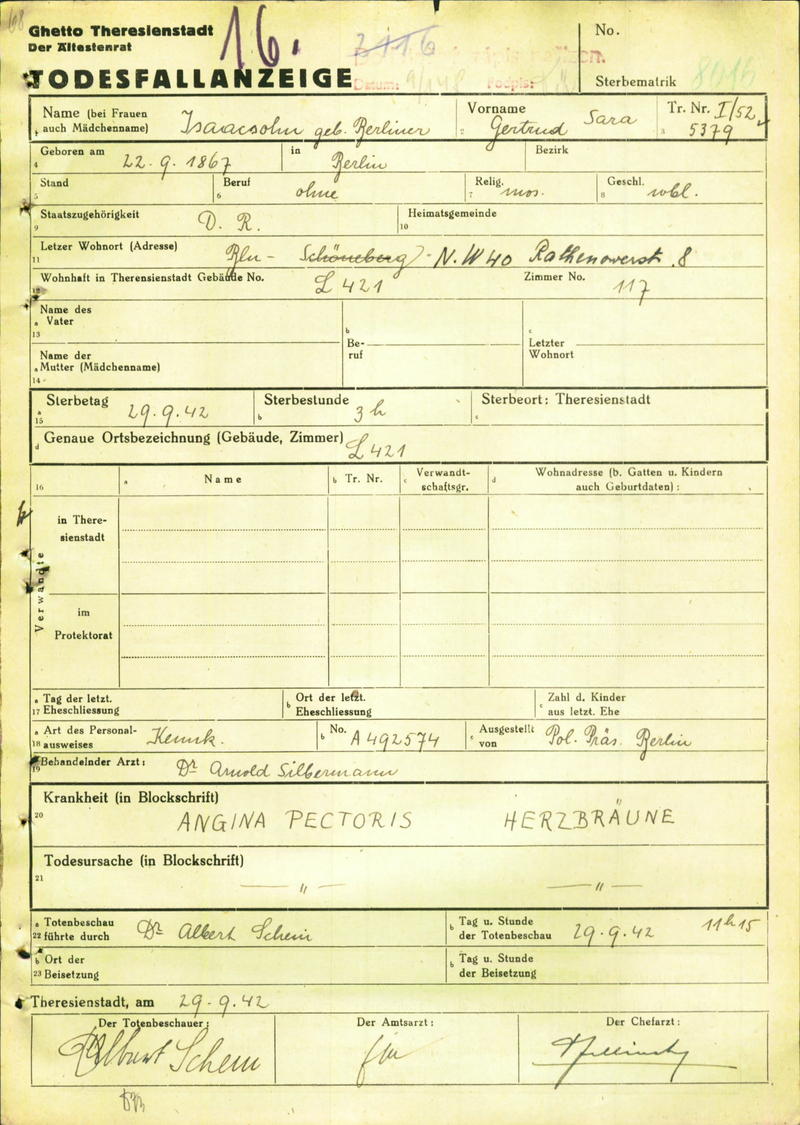 Ghetto Theresienstadt
Der Ältestenrat
16.
No.
TODESFALLANZEIGE
Sterbematrik
Name (bei Frauen auch Mädchenname) Isaacsohn geb. Berliner
2 Vorname Gertrud Sara
3 Tr. Nr. I/52, 5379
4 Geboren am 22.9.1867 in Berlin Bezirk
5 Stand 6 Beruf ohne 7 Relig. mos. 8 Geschl. wbl.
9 Staatszugehörigkeit D. R. 10 Heimatsgemeinde
11 Letzer Wohnort (Adresse) Bln - Schöneberg N.W 40 Rathenowerstr. 8
Wohnhaft in Therensienstadt Gebäude No. L 421 Zimmer No. 117
13 a Name des Vater b Beruf c Letzter Wohnort
14 a Name der Mutter (Mädchenname)
15 a Sterbetag 29.9.42 b Sterbestunde 3 h c Sterbeort: Theresienstadt
d Genaue Ortsbezeichnung (Gebäude, Zimmer) L 421
16 a Name b Tr. Nr. c Verwandtschaftsgr. d Wohnadresse (b. Gatten u. Kindern auch Geburtdaten) :
Verwandte
in Theresienstadt
im Protektorat
17 a Tag der letzt. Eheschliessung b Ort der letzt. Eheschliessung c Zahl d. Kinder aus letzt. Ehe
18 a Art des Personalausweises Kennk. b No. A 492574 c Ausgestellt von Pol. Präs. Berlin
19 Behandelnder Arzt : Dr Arnold Silbermann
20 Krankheit (in Blockschrift)
ANGINA PECTORIS HERZBRÄUNE
21 Todesursache (in Blockschrift)
— " — — " —
22 a Totenbeschau führte durch Dr Albert Schein b Tag u. Stunde der Totenbeschau 29.9.42 11h15
23 b Ort der Beisetzung b Tag u. Stunde der Beisetzung
Theresienstadt, am 29.9.42
Der Totenbeschauer : Der Amtsarzt : Der Chefarzt :
Albert Schein